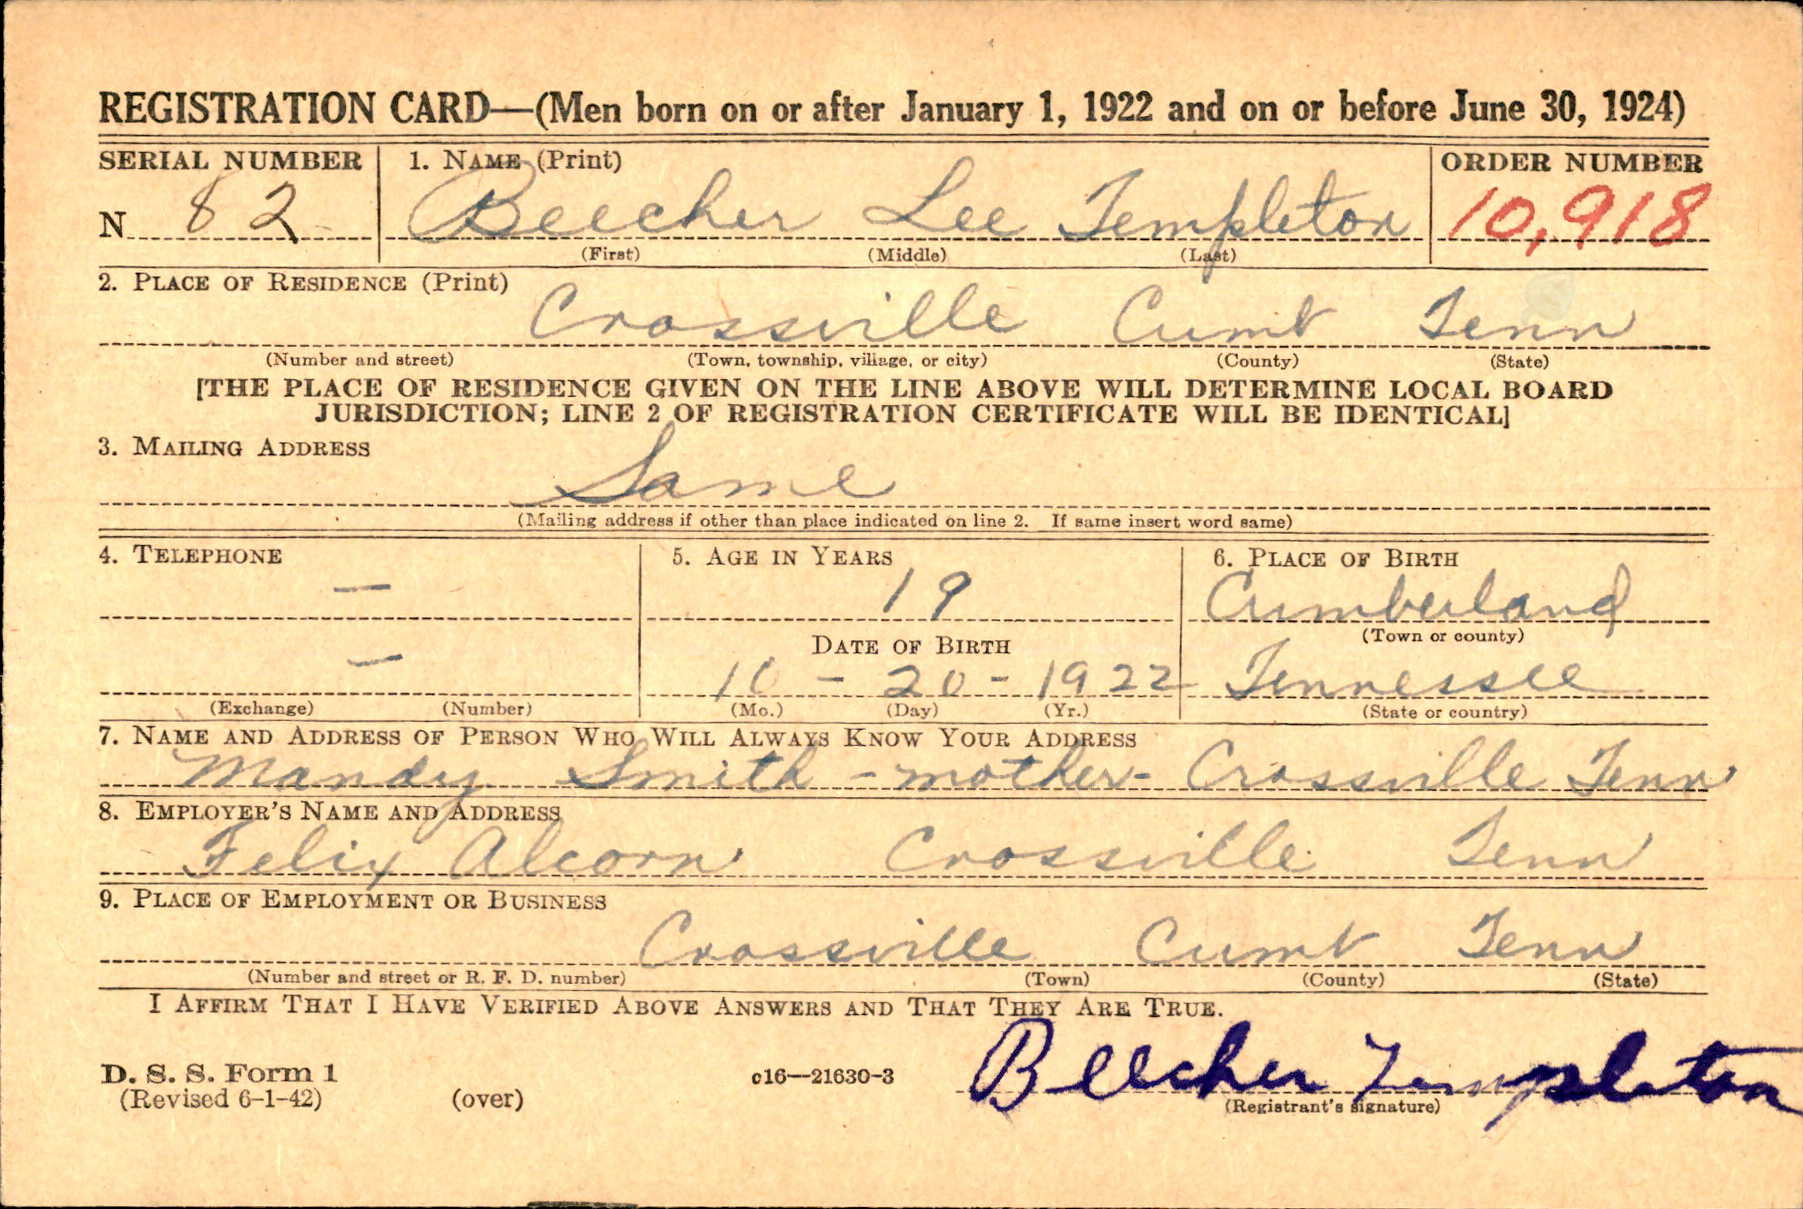 REGISTRATION CARD—(Men born on or after January 1, 1922 and on or before June 30, 1924)
SERIAL NUMBER 1. NAME (Print) ORDER NUMBER
N 82 Beecher Lee Templeton 10,918
(First) (Middle) (Last)
2. PLACE OF RESIDENCE (Print)
Crossville Cumb Tenn
(Number and street) (Town, township, village, or city) (County) (State)
[THE PLACE OF RESIDENCE GIVEN ON THE LINE ABOVE WILL DETERMINE LOCAL BOARD
JURISDICTION; LINE 2 OF REGISTRATION CERTIFICATE WILL BE IDENTICAL]
3. MAILING ADDRESS
Same
(Mailing address if other than place indicated on line 2. If same insert word same)
4. TELEPHONE 5. AGE IN YEARS 6. PLACE OF BIRTH
— 19 Cumberland
(Town or county)
DATE OF BIRTH
— 10 - 20 - 1922 Tennessee
(Exchange) (Number) (Mo.) (Day) (Yr.) (State or country)
7. NAME AND ADDRESS OF PERSON WHO WILL ALWAYS KNOW YOUR ADDRESS
Mandy Smith - mother - Crossville Tenn
8. EMPLOYER'S NAME AND ADDRESS
Felix Alcorn Crossville Tenn
9. PLACE OF EMPLOYMENT OR BUSINESS
Crossville Cumb Tenn
(Number and street or R. F. D. number) (Town) (County) (State)
I AFFIRM THAT I HAVE VERIFIED ABOVE ANSWERS AND THAT THEY ARE TRUE.
D. S. S. Form 1 c16—21630-3 Beecher Templeton
(Revised 6-1-42) (over) (Registrant's signature)